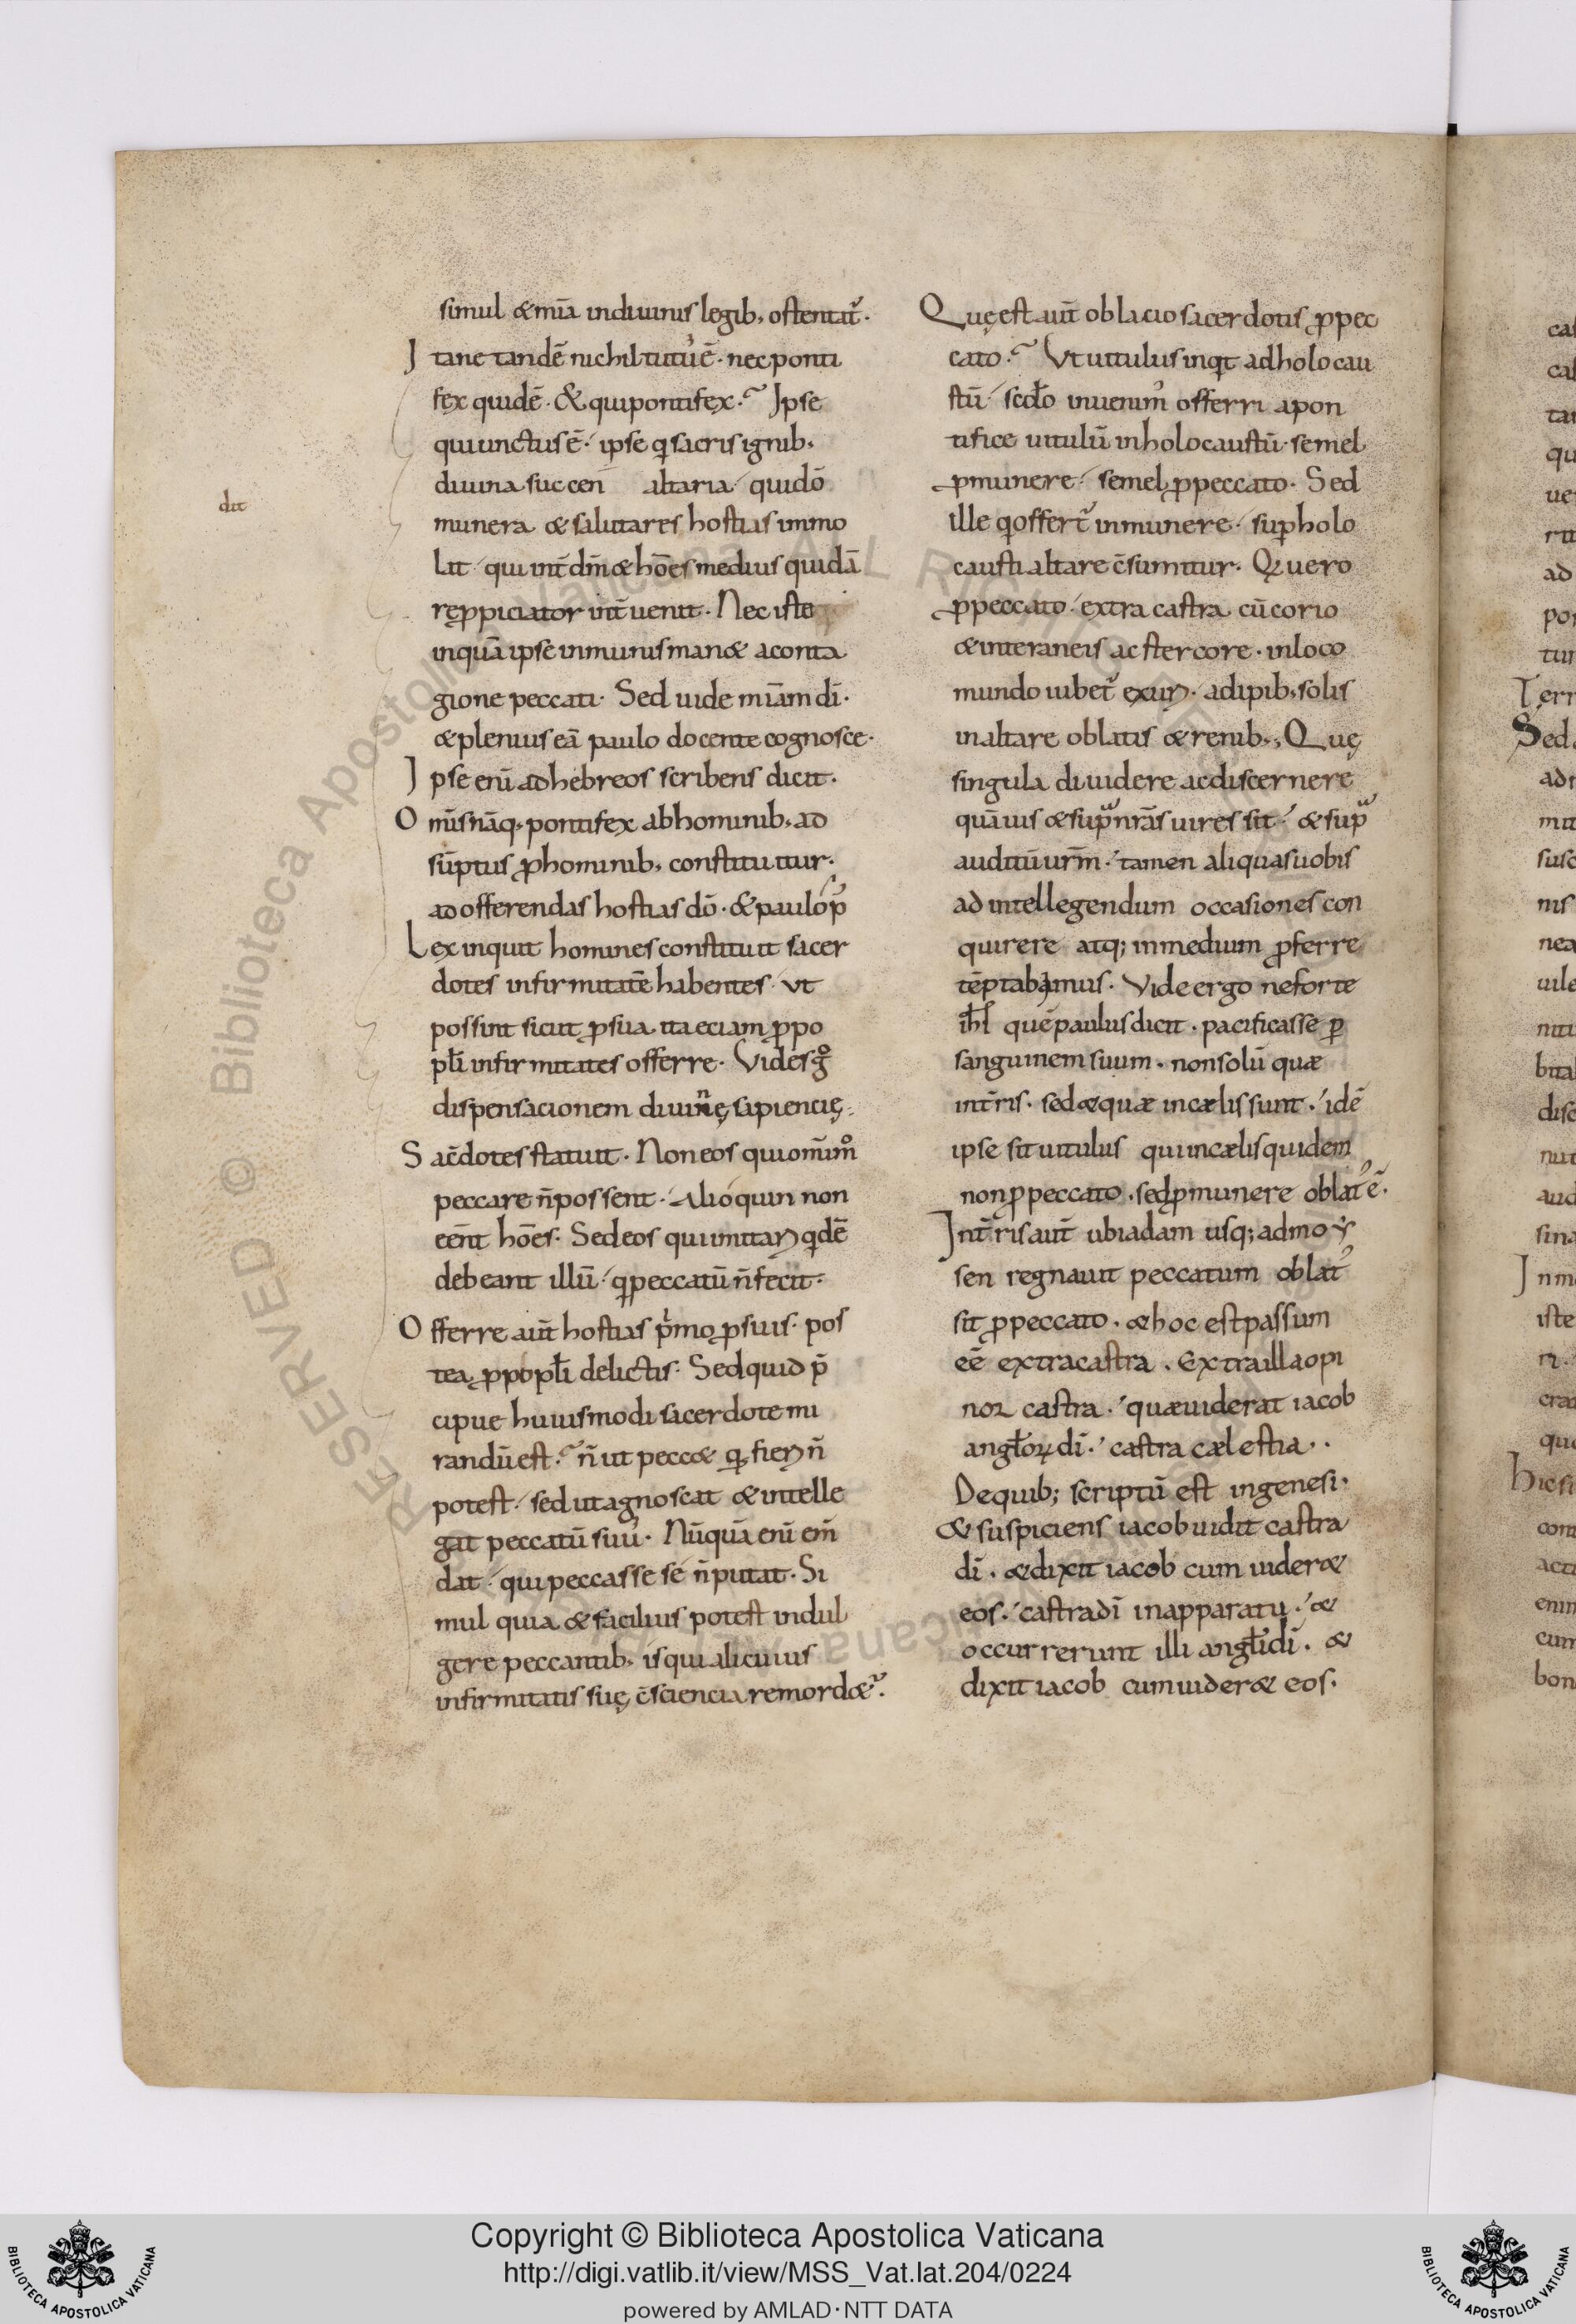 dit
simul & mīa indiuinis legib; ostentat᷑.
Itane tandē nichil tutū ē. nec ponti
fex quidē. & qui pontifex.? Ipse
qui unctus ē. ipse q̄ sacris ignib;
diuina succen altaria quidō
munera & salutares hostias immo
lat qui int̄ dm̄ & hōes medius quidā
reꝓpiciator int̄uenit. Nec iste
inquā ipse inmunis man& aconta
gione peccati. Sed uide mīam dī.
& plenius eā paulo docente cognosce.
Ipse enī ad hebreos scribens dicit.
Omīs nāq; pontifex ab hominib; ad
sūptus ꝓ hominib; constituitur.
ad offerendas hostias dō. & paulo p̄
Lex inquit homines constituit sacer
dotes infirmitatē habentes ut
possint sicut ꝓ sua ita eciam ꝓ po
pl̄i infirmitates offerre. Vides gͦ
dispensacionem diuinę sapiencię.
Sac̄dotes statuit. Non eos qui om̄imͦ
peccare n̄ possent. Alioquin non
eēnt hōes. Sed eos qui imitari qidē
debeant illū q̄ peccatū n̄ fecit.
Offerre aūt hostias p̄mo ꝓ suis. pos
tea ꝓ popl̄i delictis. Sed quid p̄
cipue huiusmodi sacerdote mi
randū est.? n̄ ut pecc& q̄ fieri n̄
potest. sed ut agnoscat & intelle
gat peccatū suū. Nūquā enī em̄
dat qui peccasse se n̄ putat. Si
mul quia & facilius potest indul
gere peccantib; is qui alicuius
infirmitatis suę c̄sciencia remord&᷑.
Quę est aūt oblacio sacerdotis ꝓ pec
cato.? Vt uitulus inqt ad holocau
stū sed̄o inuenim᷒ offerri apon
tifice uitulū in holocaustū. semel
ꝓ munere. semel ꝓ peccato. Sed
ille q̄ offert᷑ in munere. sup̄ holo
causti altare c̄sumitur. Qi uero
ꝓ peccato extra castra cū corio
& interaneis ac stercore. in loco
mundo iubet᷑ exuri. adipib; solis
in altare oblatis & renib;. Quę
singula diuidere ac discernere
quāuis & supͣ nr̄as uires sit. & supͣ
auditū urm̄. tamen aliquas uobis
ad intellegendum occasiones con
quirere atq; in medium ꝓferre
tēptabimus. Vide ergo ne forte
ih̄s quē paulus dicit. pacificasse ꝑ
sanguinem suum. non solū quæ
in t̄ris. sed & quæ in cælis sunt. idē
ipse sit uitulus qui in cælis quidem
non ꝓ peccato. sed ꝓ munere oblat᷒ ē.
In t̄ris aūt ubi adam usq; ad moy
sen regnauit peccatum oblat᷒
sit ꝓ peccato. & hoc est passum
eē extra castra. Extra illa opi
nor castra. quæ uiderat iacob
angl̄oꝝ dī. castra cælestia..
De quib; scriptū est in genesi.
& suspiciens iacob uidit castra
dī. & dixit iacob cum uider&
eos. castra dī in apparatu. &
occurrerunt illi angl̄i dī. &
dixit iacob cum uider& eos.
cas
cas
tar
qu
ue
rit
ad
por
tur
Terr
Sed
adr
mit
susc
nis
nea
uile
nitu
bita
disc
nut
aud
sina
In m
iste
ri.
cra
quo
Hic si
com
acti
enim
cum
bon
Copyright © Biblioteca Apostolica Vaticana
http://digi.vatlib.it/view/MSS_Vat.lat.204/0224
powered by AMLAD·NTT DATA
BIBLIOTECA APOSTOLICA VATICANA
BIBLIOTECA APOSTOLICA VATICANA